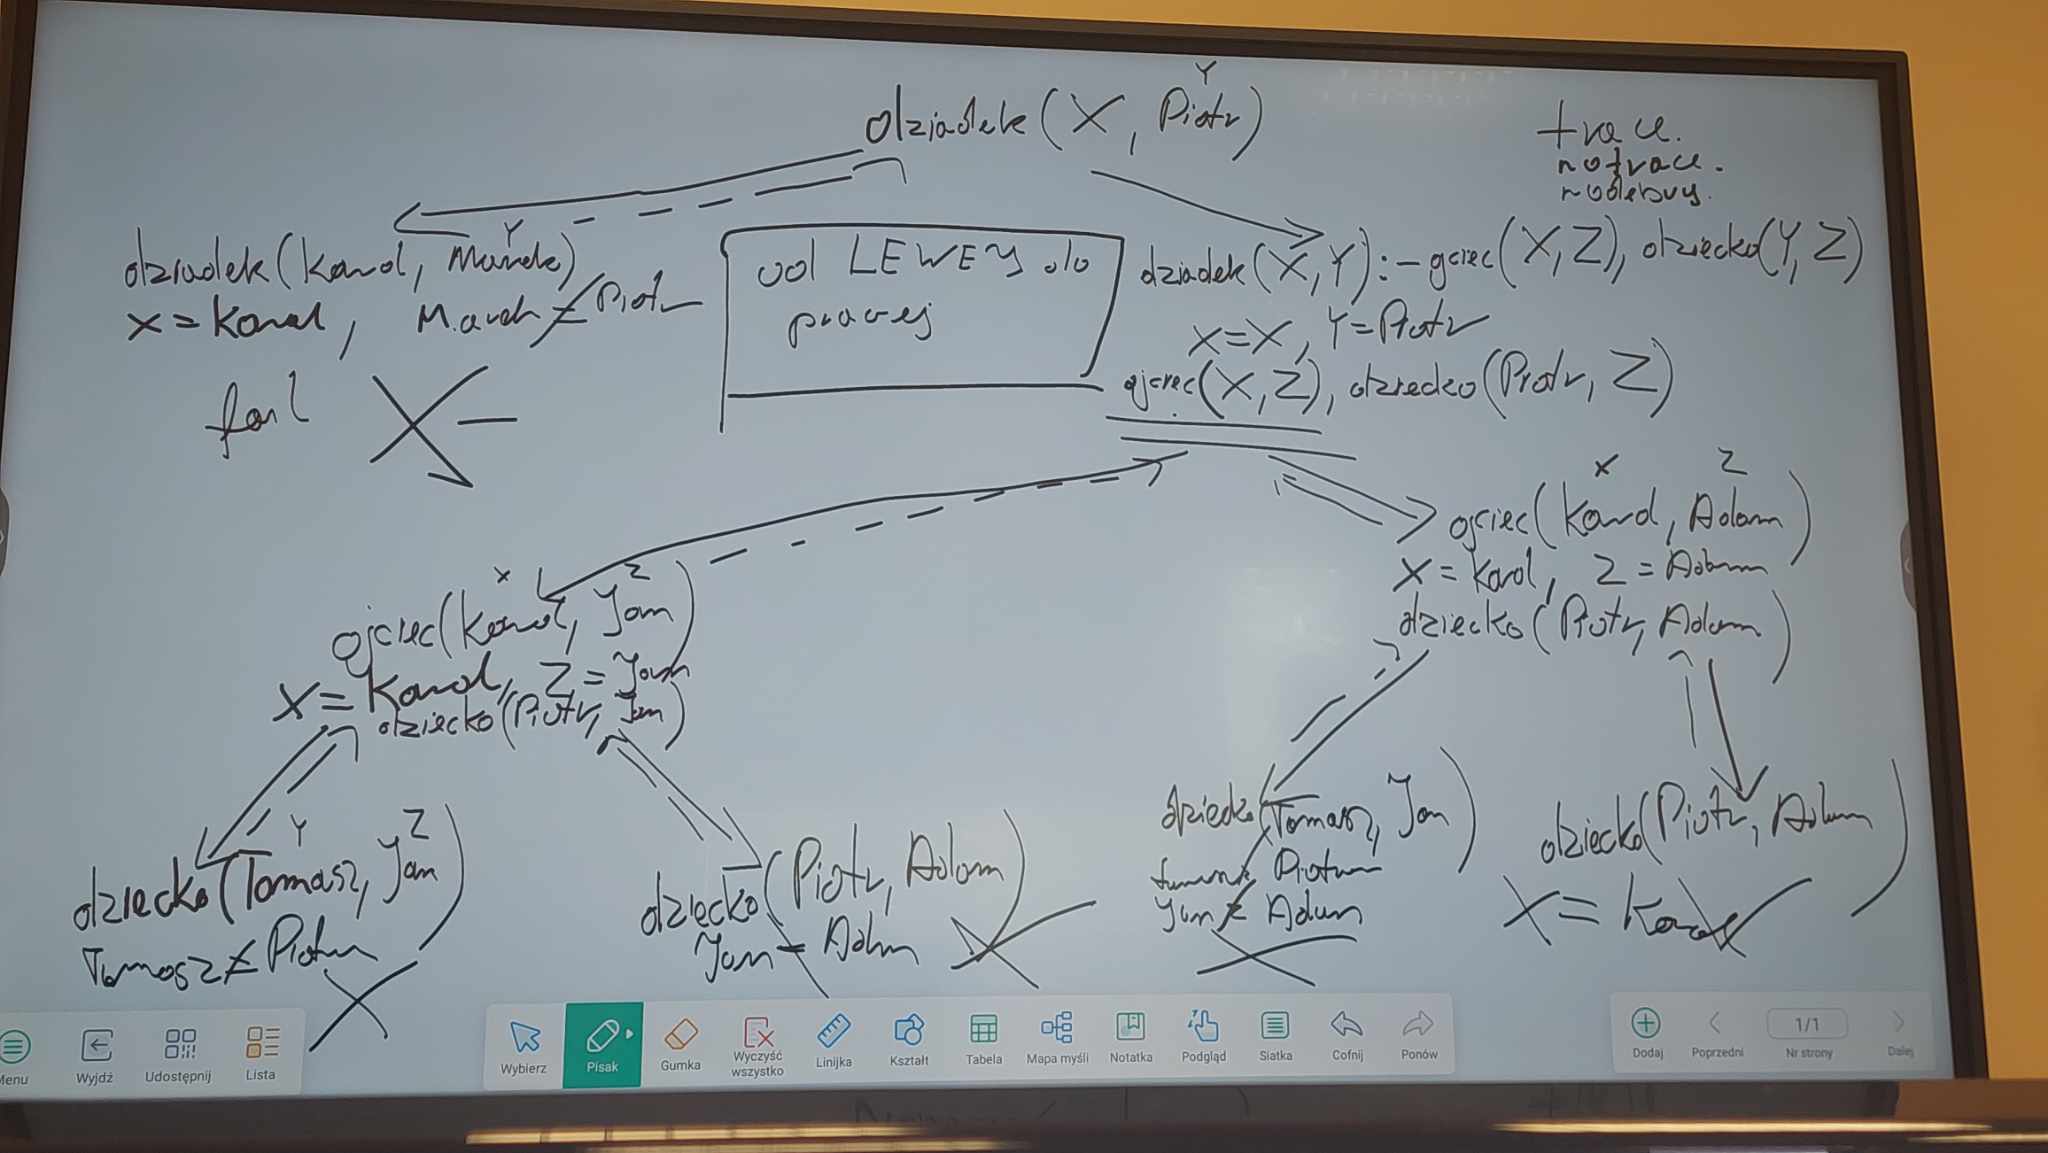 Y
dziadek (X, Piotr)
trace.
notrace.
nodebug.
Y
dziadek (Karol, Marek)
X = Karol, Marek ≠ Piotr
fail
od LEWEJ do
prawej
dziadek (X, Y) :- ojciec (X, Z), dziecko (Y, Z)
X = X, Y = Piotr
ojciec (X, Z), dziecko (Piotr, Z)
X Z
ojciec (Karol, Jan)
X = Karol, Z = Jan
dziecko (Piotr, Jan)
X Z
ojciec (Karol, Adam)
X = Karol, Z = Adam
dziecko (Piotr, Adam)
Y Z
dziecko (Tomasz, Jan)
Tomasz ≠ Piotr
dziecko (Piotr, Adam)
Jan ≠ Adam
dziecko (Tomasz, Jan)
Piotr
Jan ≠ Adam
dziecko (Piotr, Adam)
X = Karol
Menu
Wyjdź
Udostępnij
Lista
Wybierz
Pisak
Gumka
Wyczyść
wszystko
Linijka
Kształt
Tabela
Mapa myśli
Notatka
Podgląd
Siatka
Cofnij
Ponów
Dodaj
Poprzedni
1/1
Nr strony
Dalej